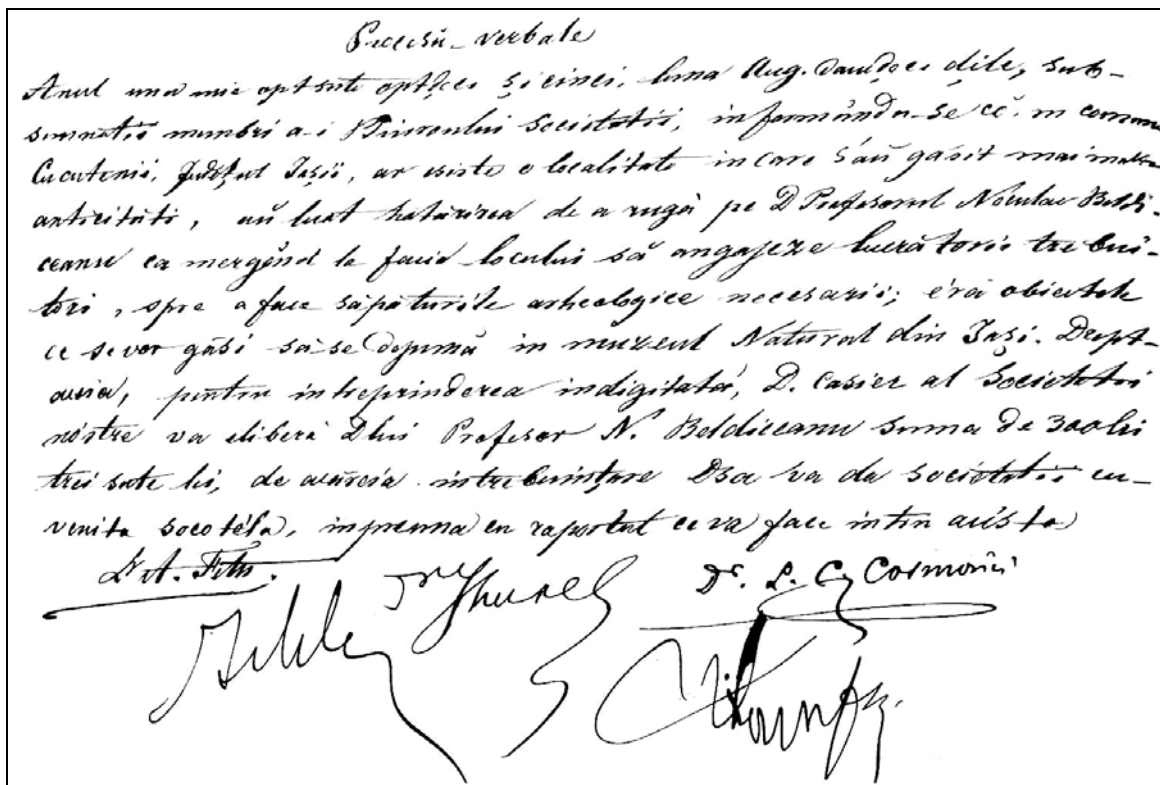 Procesŭ-verbale
Anul una mie optsute optdeci și cinci, luna Aug. douĕdeci dile, sub-
semnatii membri a-i Biuroului Societatii, informându-se cĕ in comuna
Cucutenii, Județul Iașii, ar esiste o localitate in care s'aŭ găsit mai multe
anticităti, aŭ luat hatărirea de a rugà pe D. Profesorul Neculae Beldi-
ceanu ca mergĕnd la facia locului să angajeze lucrătorii trebui-
tori, spre a face săpăturile arheologice necesarii; éră obiectele
ce se vor găsi să-se depună in muzeul Natural din Iași. Drept-
aceia, pentru intreprinderea indigitată, D. Casier al Societatii
nóstre va eliberà Dlui Profesor N. Beldiceanu suma de 300 lei
trei sute lei, de acăreia intrebuințare Dsa va da societatii cu-
venita socotéla, inpreuna cu raportul ce va face intru acésta
Dr A. Fĕtu.
Dr. L. C. Cosmovici